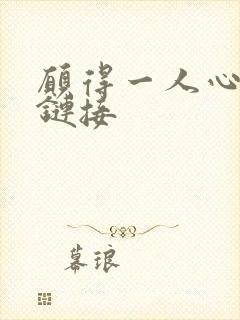 願得一人心
鏈接
幕琅